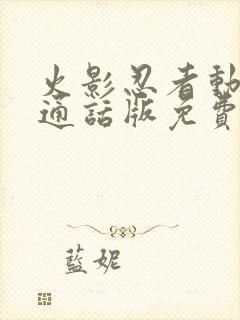 火影忍者動
通話版免費
藍妮